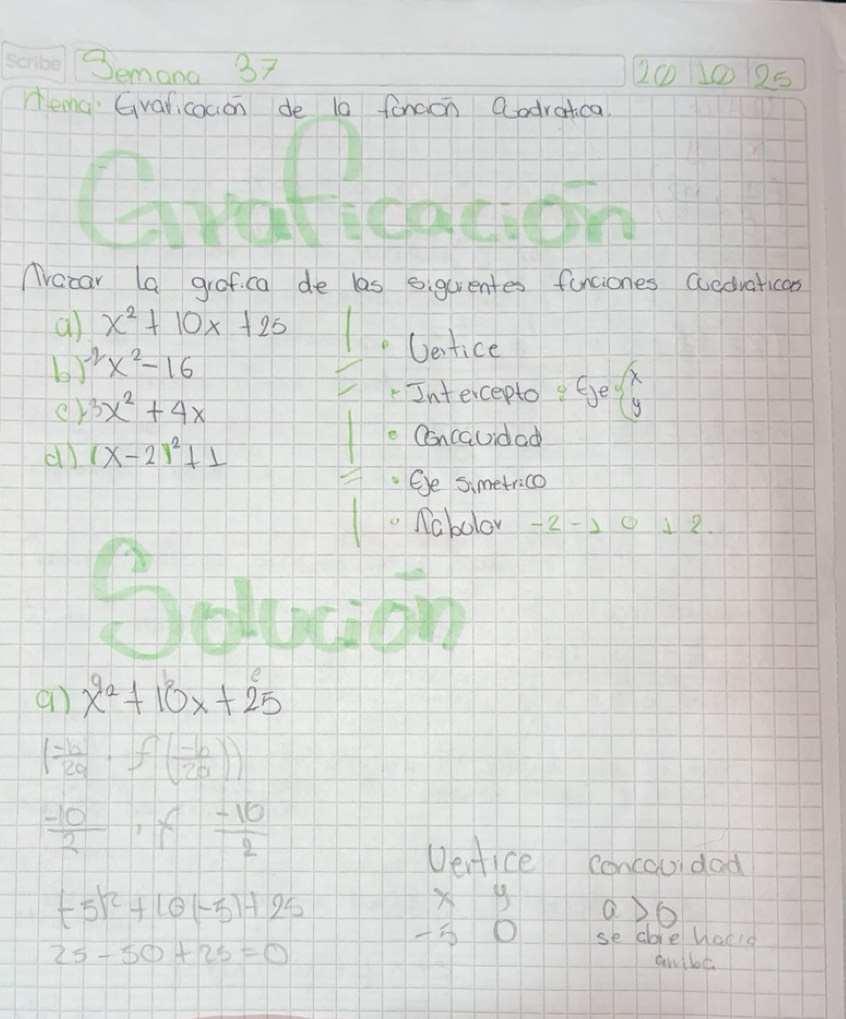 Scribe Semana 37 20 10 25
Tema: Graficación de la función Cuadratica.
Graficación
Trazar la grafica de las siguientes funciones Cuadraticas
a) x² + 10x + 25
b) -2x² - 16
c) 3x² + 4x
d) (x - 2)² + 1
• Vertice
• Intercepto • Eje { x y
• Concavidad
• Eje simetrico
• Tabular -2 -1 0 1 2.
Solución
a) x² + 10x + 25
a b c
(-b/2a , f(-b/2a))
-10/2 , f -10/2
(-5)² + 10(-5) + 25
25 - 50 + 25 = 0
Vertice
x y
-5 0
Concavidad
a > 0
se abre hacia
arriba